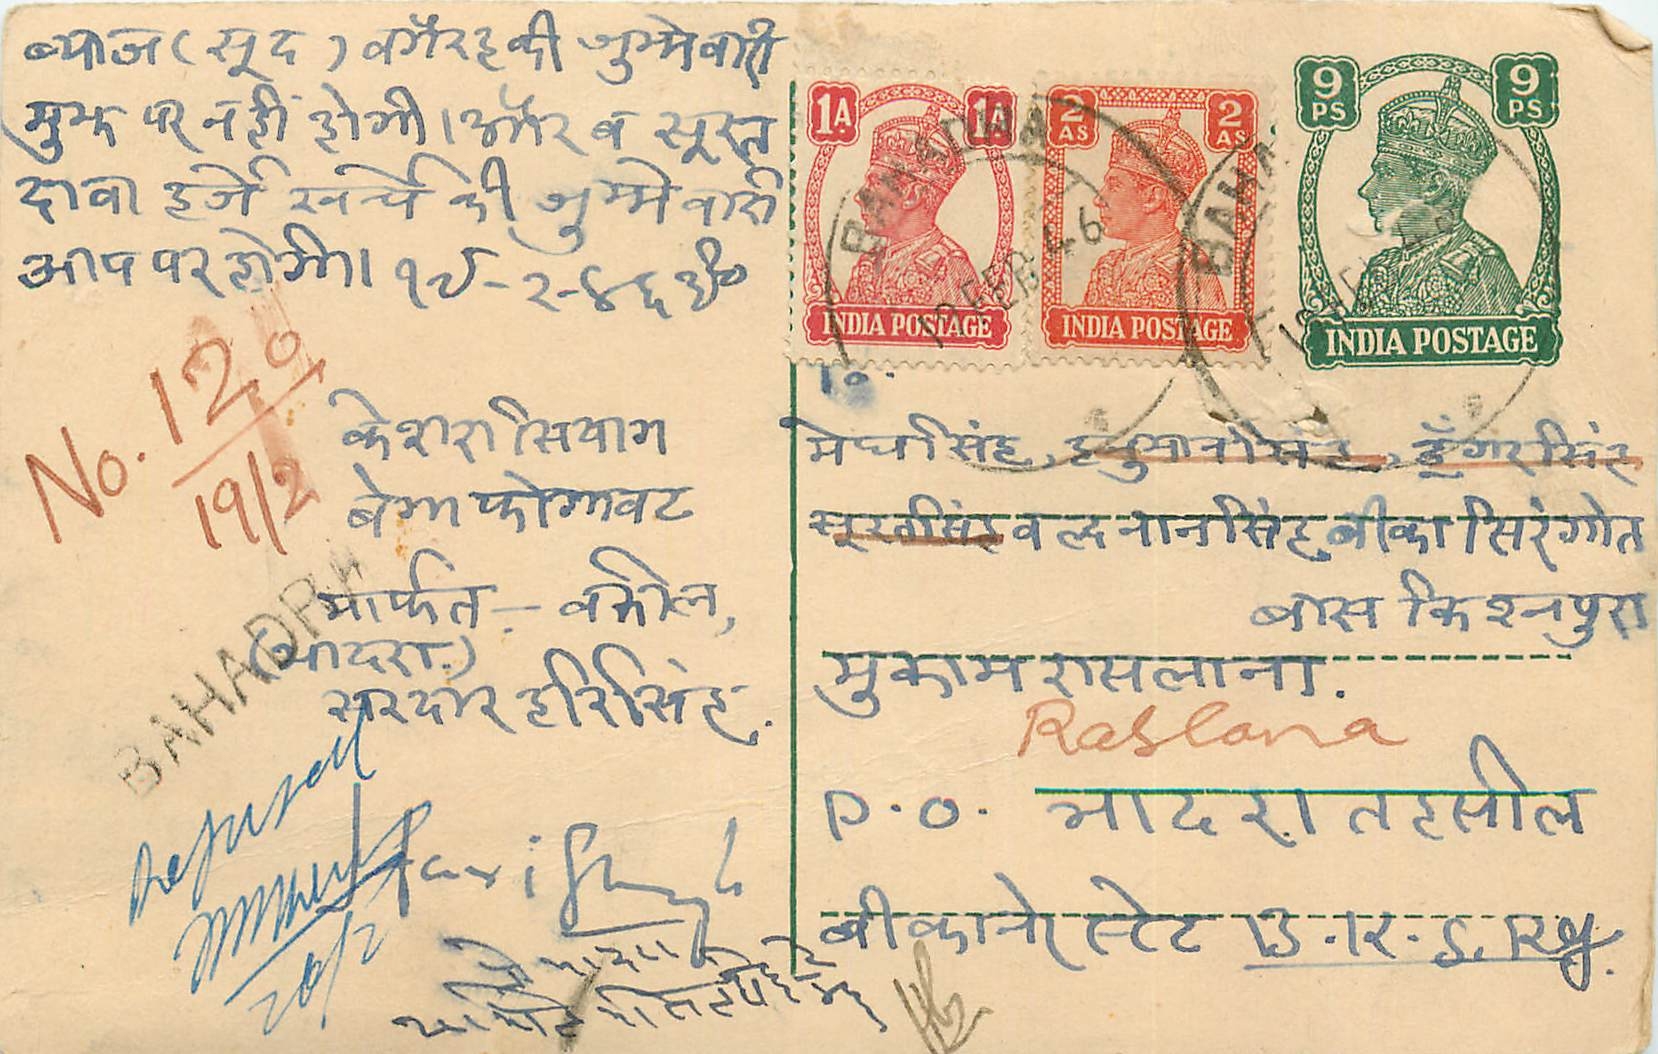 ब्याज (सूद) वगैरह की जुम्मेवारी
मुझ पर नहीं होगी। और ब सूरत
दावा हर्जे खर्चे की जुम्मेवारी
आप पर होगी। १८-२-४६ ई०
No. 120
19/2
केशरा सियाग
बेगा फोगावट
मार्फत - वकील,
(भादरा.)
सरदार हरिसिंह.
BAHADRA
Refused
20/2
1A 1A
INDIA POSTAGE
2 AS 2 AS
INDIA POSTAGE
9 PS 9 PS
INDIA POSTAGE
BAHADRA
18 FEB 46
To.
मेघसिंह, हनुमानसिंह, डूँगरसिंह
सूरतसिंह वल्द नानसिंह, बीका सिरंगोत
बास किशनपुरा
मुकाम रासलाना.
Raslana
P.O. भादरा तहसील
बीकानेर स्टेट B.K.S. Rly.